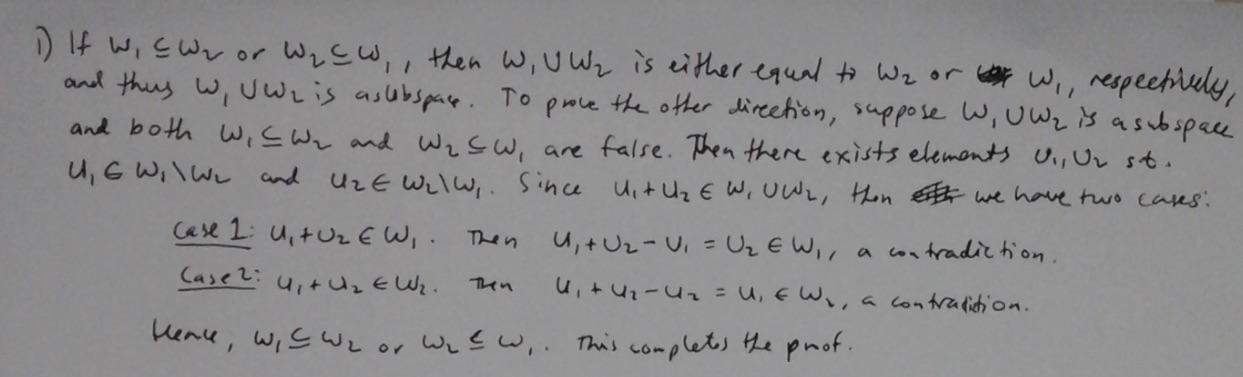 1) If W₁ ⊆ W₂ or W₂ ⊆ W₁, then W₁ ∪ W₂ is either equal to W₂ or W₁, respectively,
and thus W₁ ∪ W₂ is a subspace. To prove the other direction, suppose W₁ ∪ W₂ is a subspace
and both W₁ ⊆ W₂ and W₂ ⊆ W₁ are false. Then there exists elements U₁, U₂ st.
U₁ ∈ W₁\W₂ and U₂ ∈ W₂\W₁. Since U₁+U₂ ∈ W₁ ∪ W₂, then we have two cases:
Case 1: U₁+U₂ ∈ W₁. Then U₁+U₂-U₁ = U₂ ∈ W₁, a contradiction.
Case 2: U₁+U₂ ∈ W₂. Then U₁+U₂-U₂ = U₁ ∈ W₂, a contradiction.
Hence, W₁ ⊆ W₂ or W₂ ⊆ W₁. This completes the proof.